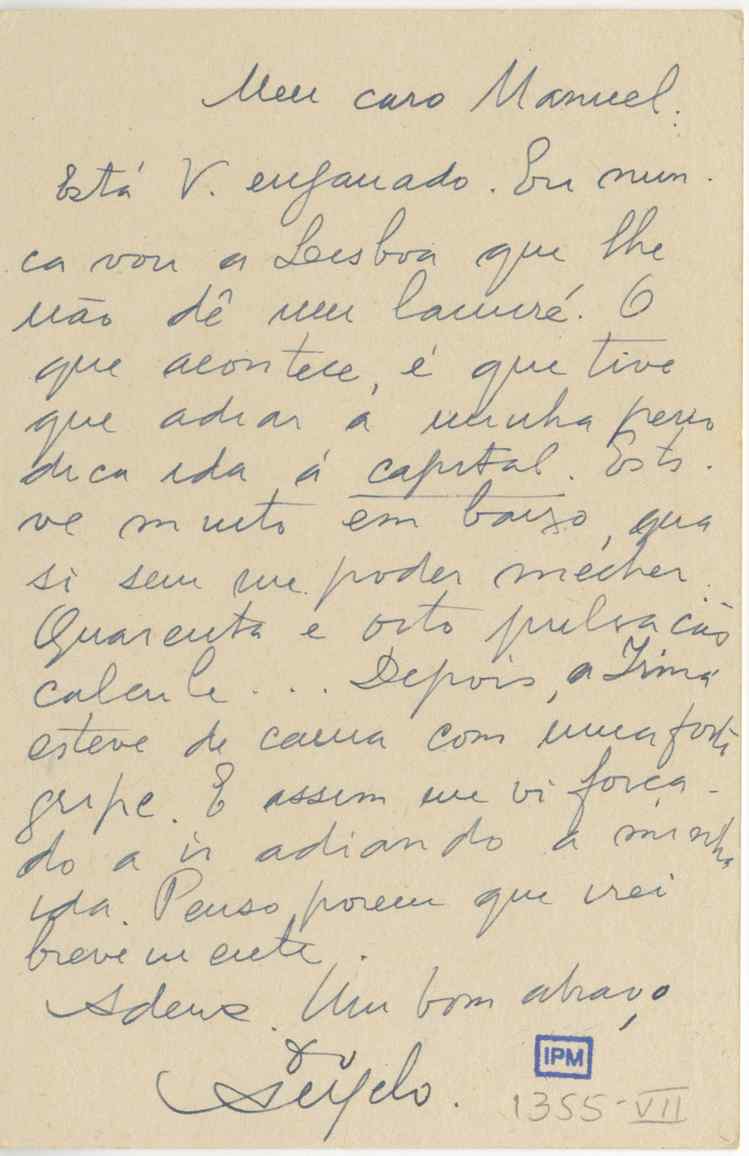 Meu caro Manuel.
Está V. enganado. Eu nun-
ca vou a Lisboa que lhe
não dê um lamiré. O
que acontece, é que tive
que adiar a minha perio
dica ida á capital. Esti-
ve muito em baixo, qua
si sem me poder mecher.
Quarenta e oito pulsacões
calcule... Depois, a Irmã
esteve de cama com uma forte
gripe. E assim me vi força-
do a ir adiando a minha
ida. Penso porem que irei
brevemente.
Adeus. Um bom abraço
Ângelo.
IPM
1355-VII